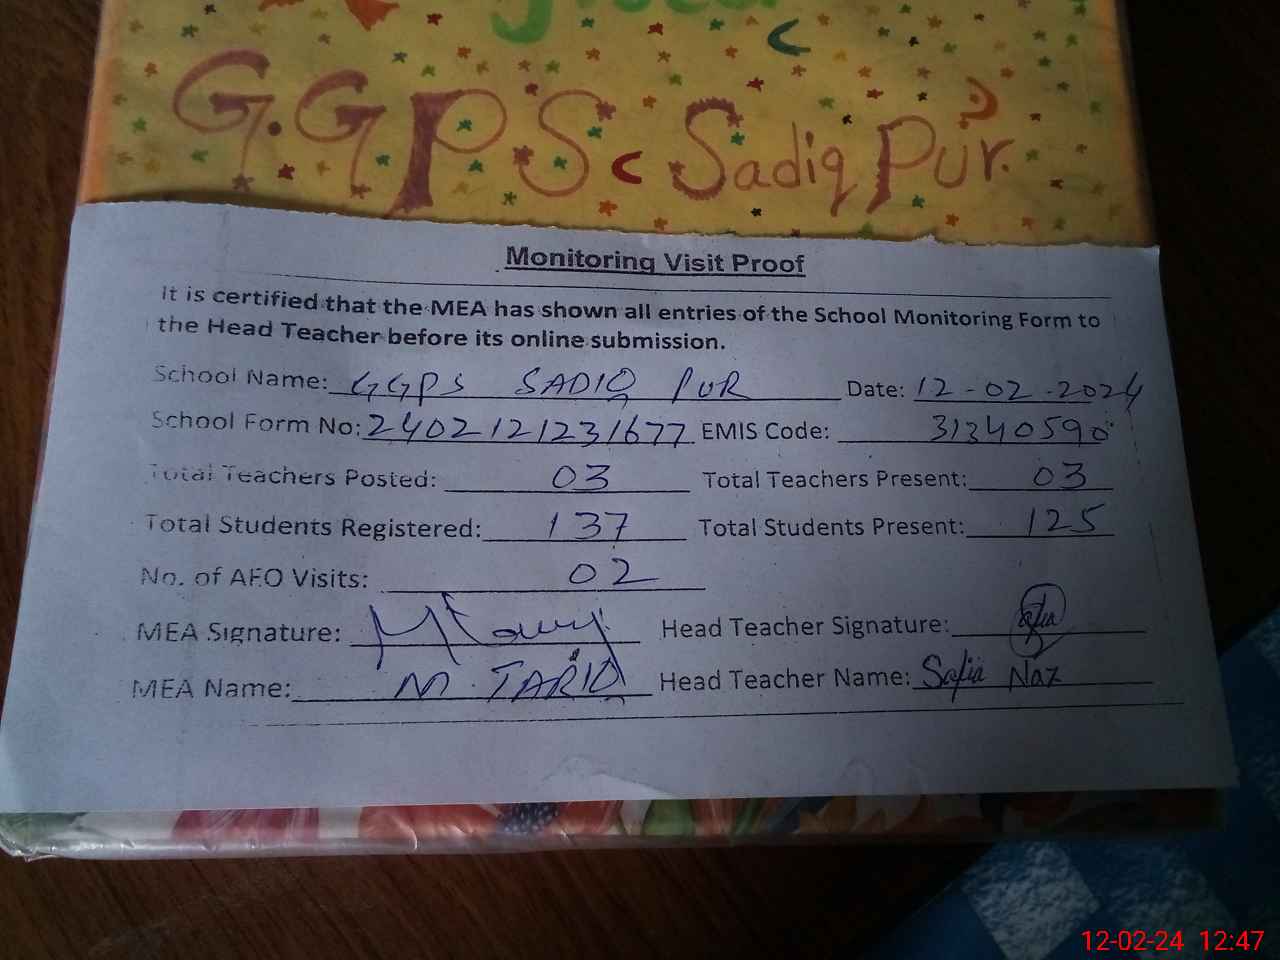 G.GPS Sadiq Pur.
Monitoring Visit Proof
It is certified that the MEA has shown all entries of the School Monitoring Form to
the Head Teacher before its online submission.
School Name: GGPS SADIQ PUR Date: 12-02-2024
School Form No: 2402121231677 EMIS Code: 31340590
Total Teachers Posted: 03 Total Teachers Present: 03
Total Students Registered: 137 Total Students Present: 125
No. of AEO Visits: 02
MEA Signature: Head Teacher Signature: Safia
MEA Name: M. TARIQ Head Teacher Name: Safia Naz
12-02-24 12:47